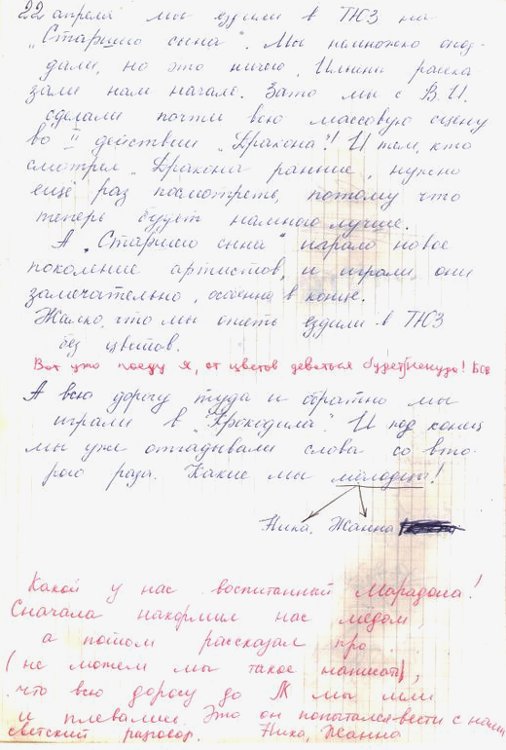 22 апреля мы ездили в ТЮЗ на
„Старшего сына". Мы немножко опоз-
дали, но это ничего. Илюши расска-
зали нам начало. Зато мы с В.И.
сделали почти всю массовую сцену
во II действии „Дракона"! И тем, кто
смотрел „Дракона" раньше, нужно
ещё раз посмотреть, потому что
теперь будет намного лучше.
А „Старшего сына" играло новое
поколение артистов, и играли они
замечательно, особенно в конце.
Жалко, что мы опять ездили в ТЮЗ
без цветов.
Вот уже поеду я, от цветов деваться будет некуда!
А всю дорогу туда и обратно мы
играли в „Крокодила". И под конец
мы уже отгадывали слова со вто-
рого раза. Какие мы молодцы!
Ника, Жанна
Какой у нас воспитанный Марадона!
Сначала накормил нас мёдом,
а потом рассказал про
(не можем мы такое написать),
что всю дорогу до М мы шли
и плевали. Это он попытался вести с нами
светский разговор. Ника, Жанна